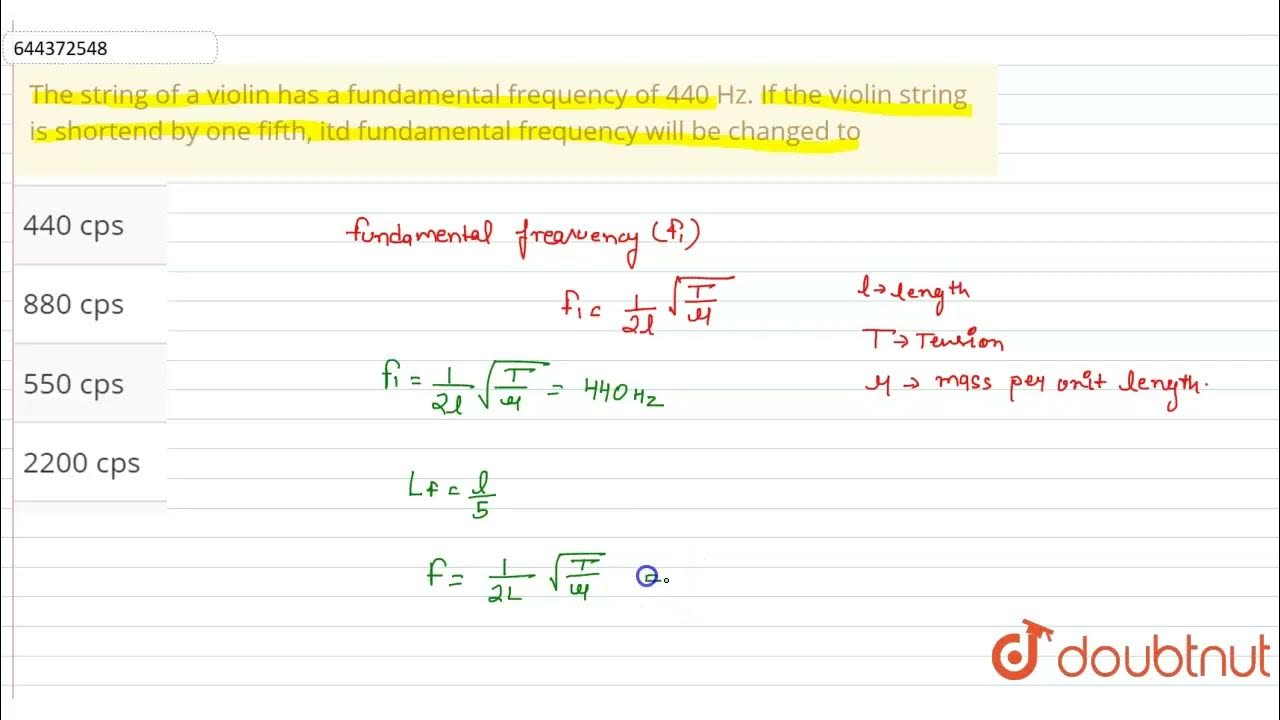 644372548
The string of a violin has a fundamental frequency of 440 Hz. If the violin string
is shortend by one fifth, itd fundamental frequency will be changed to
440 cps
880 cps
550 cps
2200 cps
fundamental frequency (f₁)
f₁ = 1/2l √T/μ
l → length
T → Tension
μ → mass per unit length.
f₁ = 1/2l √T/μ = 440 Hz
Lf = l/5
f = 1/2L √T/μ =
doubtnut